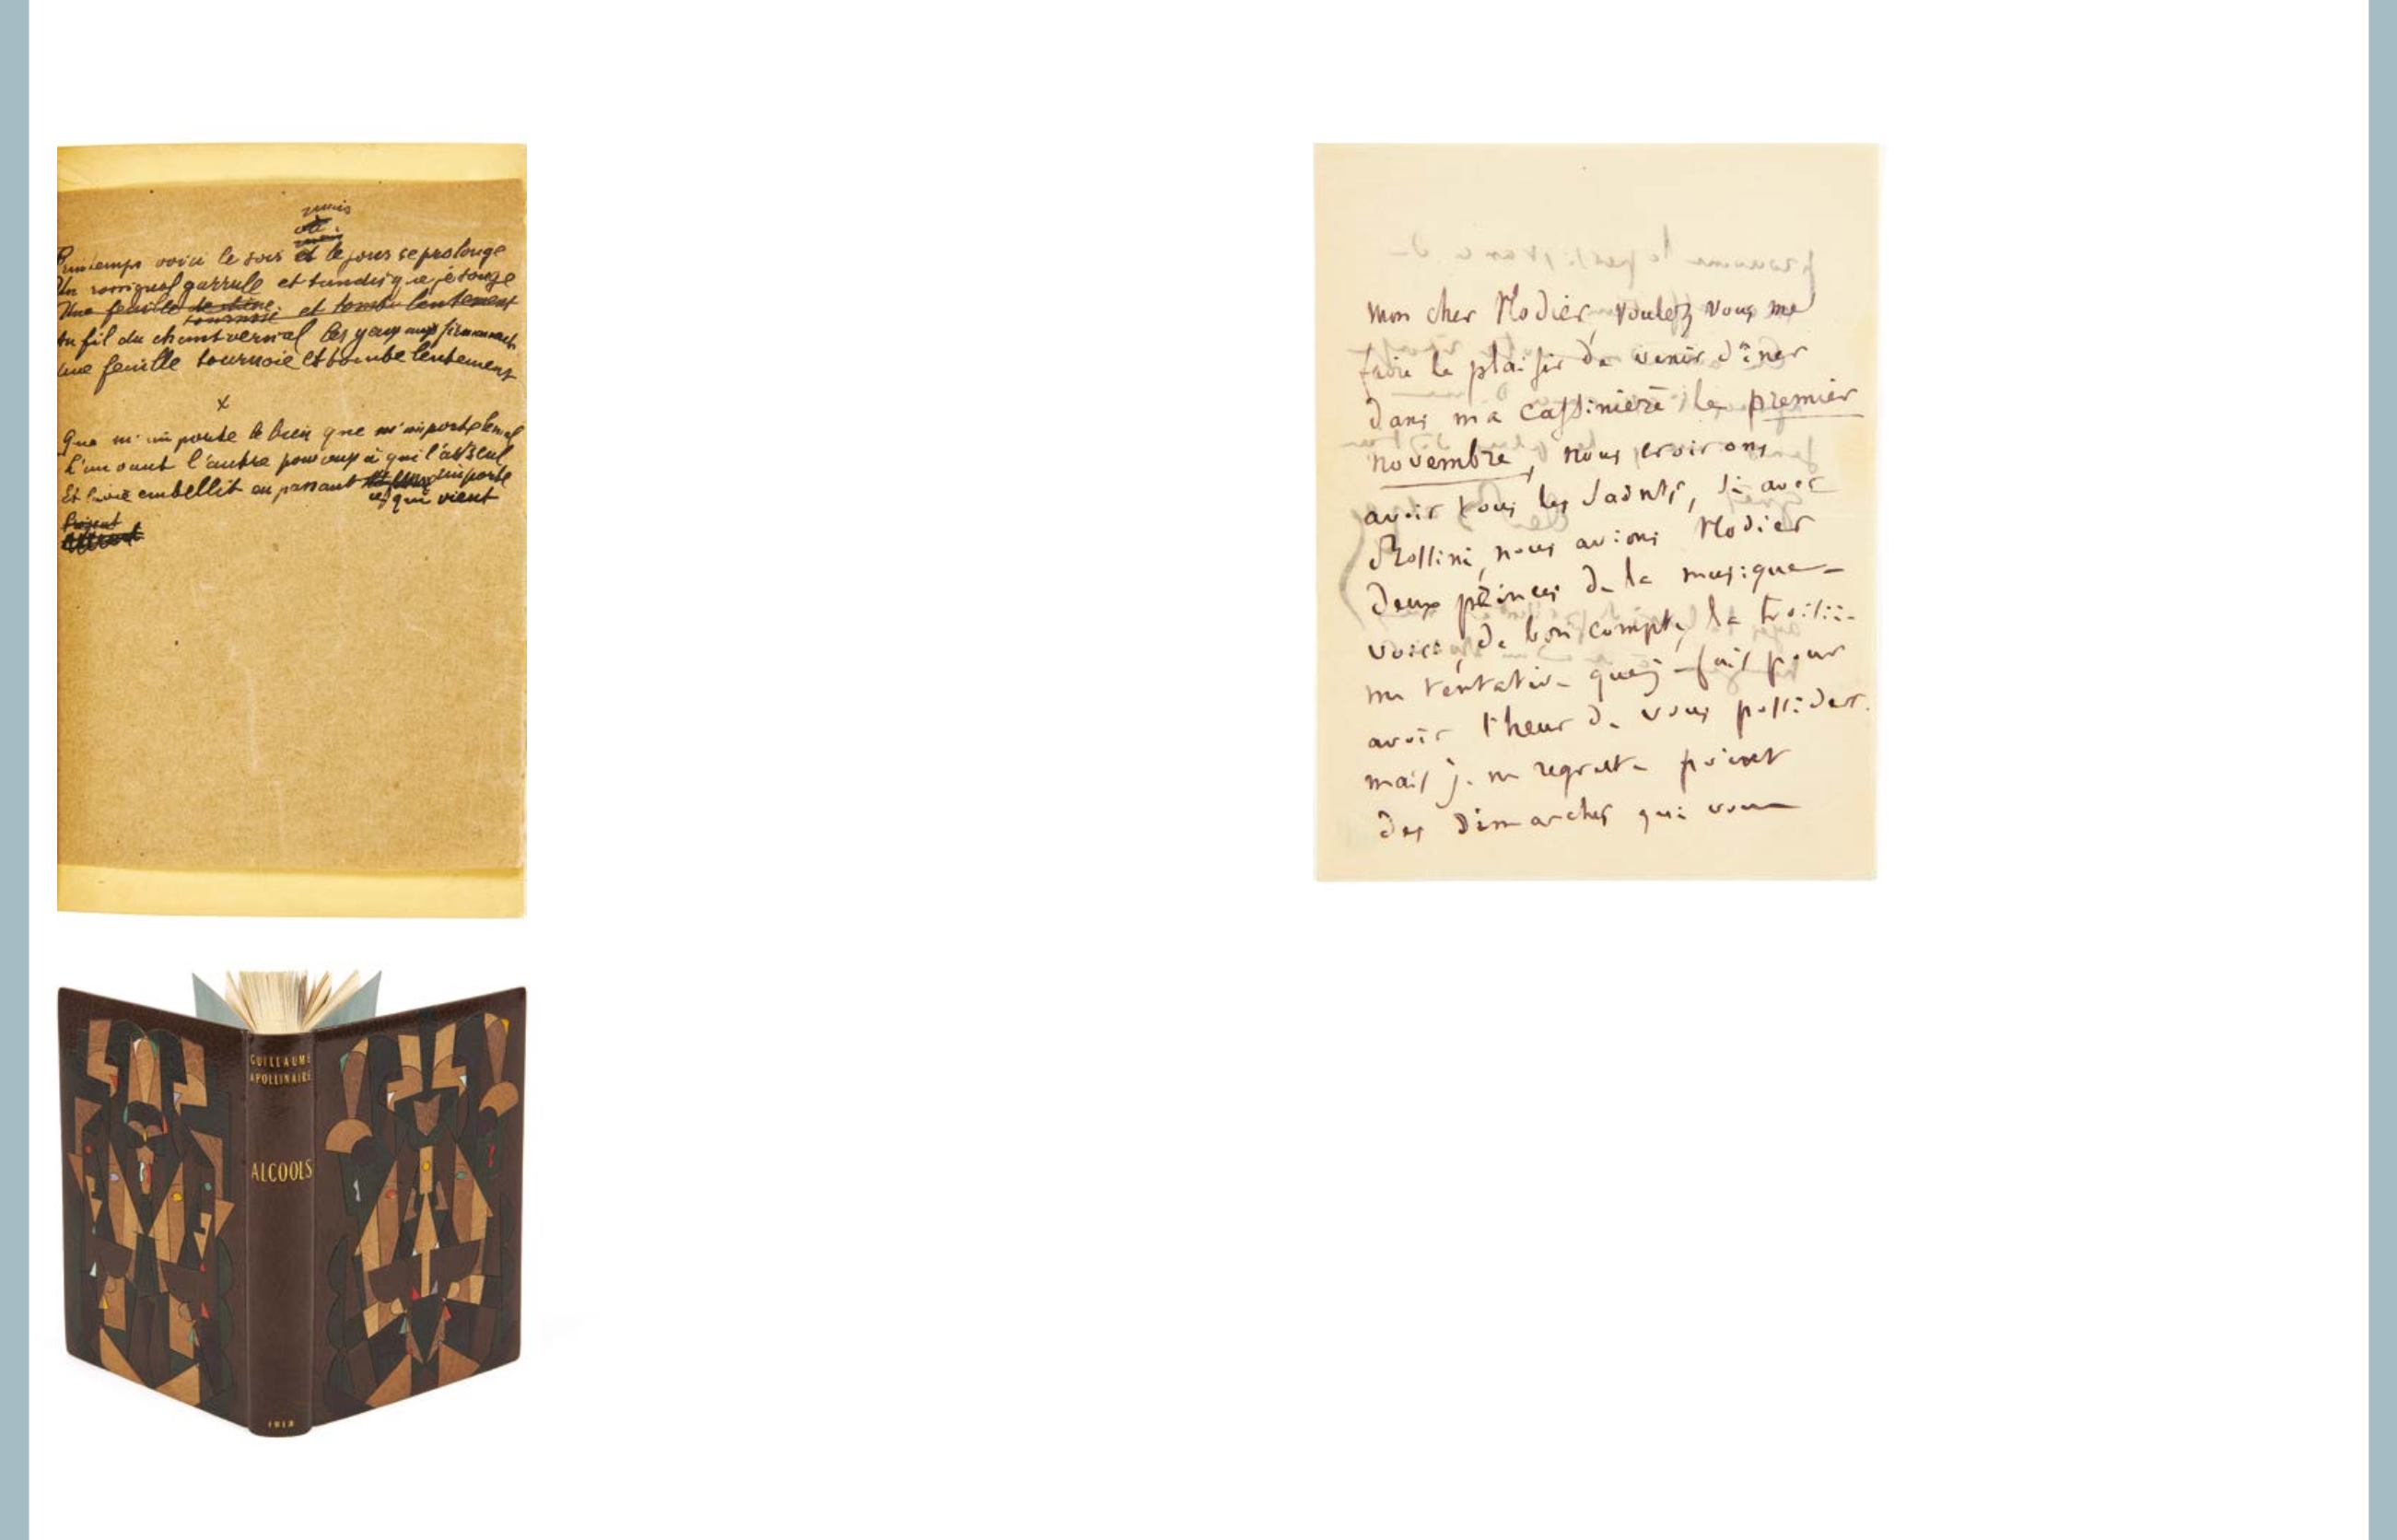 mais
Printemps voici le soir et le jour se prolonge
Un rossignol garrule et tandis que je songe
Une feuille de chêne et tombe lentement
tournoie
Au fil du chant vernal les yeux aux firmament
Une feuille tournoie et tombe lentement
x
Que m'importe le bien que m'importe le mal
L'un vaut l'autre
Et embellit en passant n'importe
qui vient
GUILLAUME
APOLLINAIRE
ALCOOLS
1913
mon cher Nodier, voulez vous me
faire le plaisir de venir dîner
dans ma cassinière le premier
novembre, nous croirons
avoir tous les Saints, si avec
Rossini, nous avions Nodier
deux princes de la musique
voici, de bon compte, la troisiè-
me tentative que je fais pour
avoir l'heur de vous posséder.
mais je ne regrette point
des dimarches qui vous